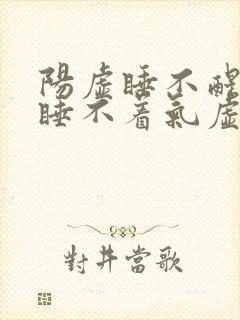 陽虛睡不醒
睡不着氣虛
對井當歌